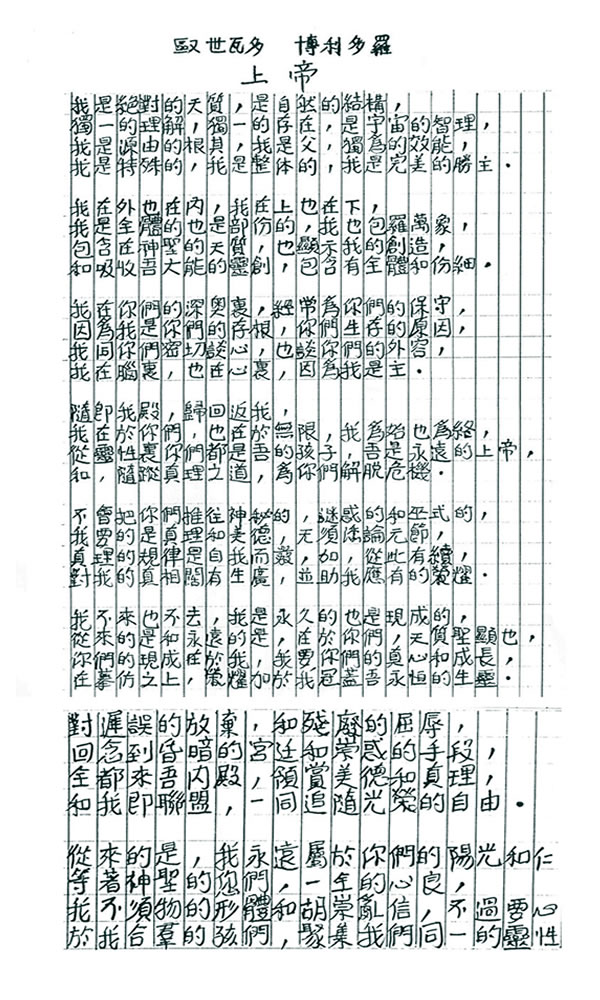 歐世瓦多 博利多羅
上帝
我是絕對的天質,是自然的結構,
獨一的理解,獨一的存在,是宇宙的智理,
我是源由的根,真我是父的,獨為效能,
我是特殊的,我是整體的,我是完美的勝主.
我在外也在內,我在上也在下,
我是全體的,是部份的,也我包羅萬象,
包含在神聖的能質也,顯示我的創造,
和吸收吾大的天靈創,包含有全體和份細.
我在你們的深奧裏,經常為你們的保守,
因為我是你們的存根,你們生存的原因,
我同你們密切談心,也談你們的外容,
我在腦裏,也在心裏,因為我是主.
隨即我殿,歸回返我,
我在於你們也在於無限,我為始也為終,
從靈性裏,你們都是吾的孩子,我是永遠的上帝,
和,隨蹤真理之道,為你們解脫危機.
不會把你們推往神秘的,謎惑的和巫式的,
我要的是真理和美德,無須添論元節,
真理的規律是自而發,加從此有續,
對我的真相闊有生廣,並助我應有的榮耀.
我不來也不去,我是永久的也是現成的,
從來也是和永遠的是,在於你們的天質聖顯也,
你們的是成在於我,我要你們真心和成長,
在摹仿現之上,榮耀加於你冠蓋吾永恒的生靈.
對遲誤的放棄,和殘廢的屈辱,
回念到昏暗的宮廷和崇惑的手段,
全都來吾內殿,領賞美德和真理,
和我即聯盟,一同追隨光榮的自由.
從來的是,我永遠屬於你們的陽光和仁
等著神聖的你們一全的心良,
我不須物的形體,和胡崇亂信,不過要心
於我合羣的孩們,聚集我們同一的靈性